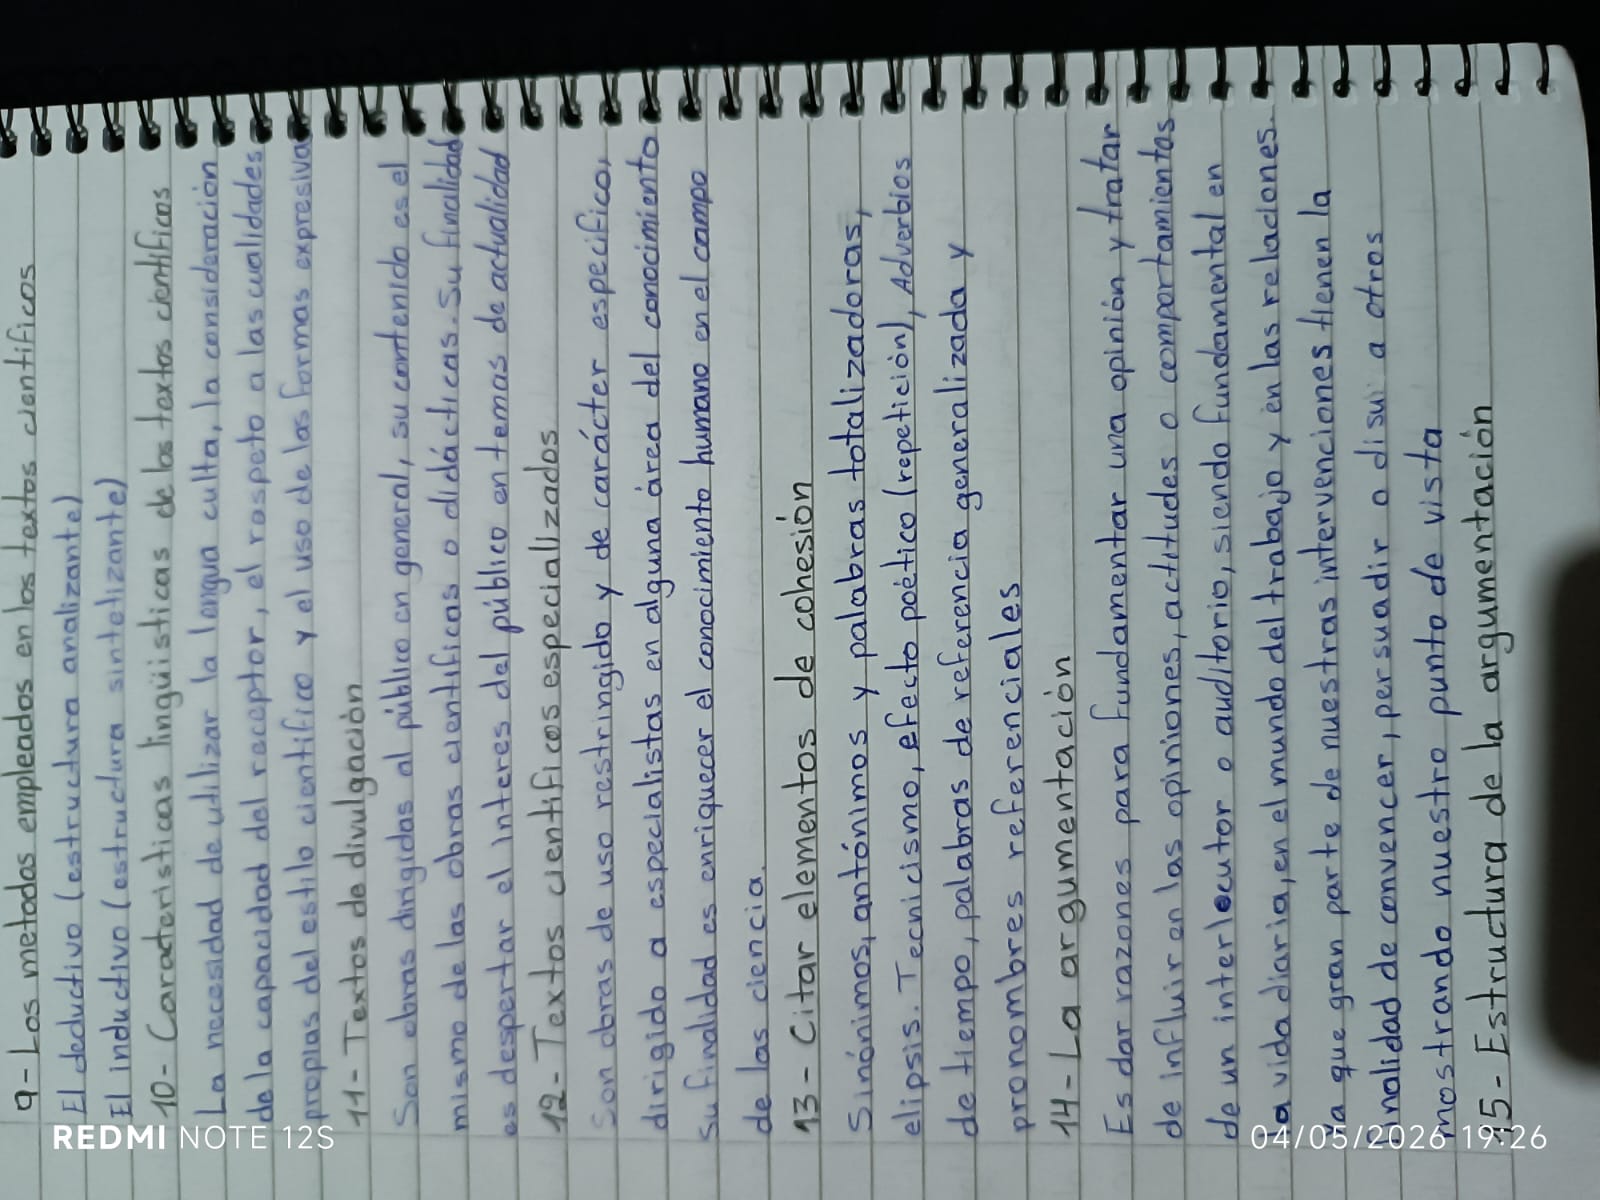 9- Los metodos empleados en los textos cientificos
El deductivo (estructura analizante)
El inductivo (estructura sintetizante)
10- Caracteristicas lingüisticas de los textos cientificos
La necesidad de utilizar la lengua culta, la consideración
de la capacidad del receptor, el respeto a las cualidades
propias del estilo cientifico y el uso de las formas expresiva
11- Textos de divulgación
Son obras dirigidas al público en general, su contenido es el
mismo de las obras cientificas o didácticas. Su funcialidad
es despertar el interes del público en temas de actualidad
12- Textos cientificos especializados
Son obras de uso restringido y de carácter especifico,
dirigido a especialistas en alguna área del conocimiento
Su finalidad es enriquecer el conocimiento humano en el campo
de las ciencia.
13- Citar elementos de cohesión
Sinónimos, antónimos y palabras totalizadoras,
elipsis. Tecnicismo, efecto poético (repetición), Adverbios
de tiempo, palabras de referencia generalizada y
pronombres referenciales
14- La argumentación
Es dar razones para fundamentar una opinión y tratar
de influir en las opiniones, actitudes o comportamientos
de un interlocutor o auditorio, siendo fundamental en
la vida diaria, en el mundo del trabajo y en las relaciones.
Ya que gran parte de nuestras intervenciones tienen la
finalidad de convencer, persuadir o disui a otros
mostrando nuestro punto de vista
15- Estructura de la argumentación
REDMI NOTE 12S
04/05/2026 19:26